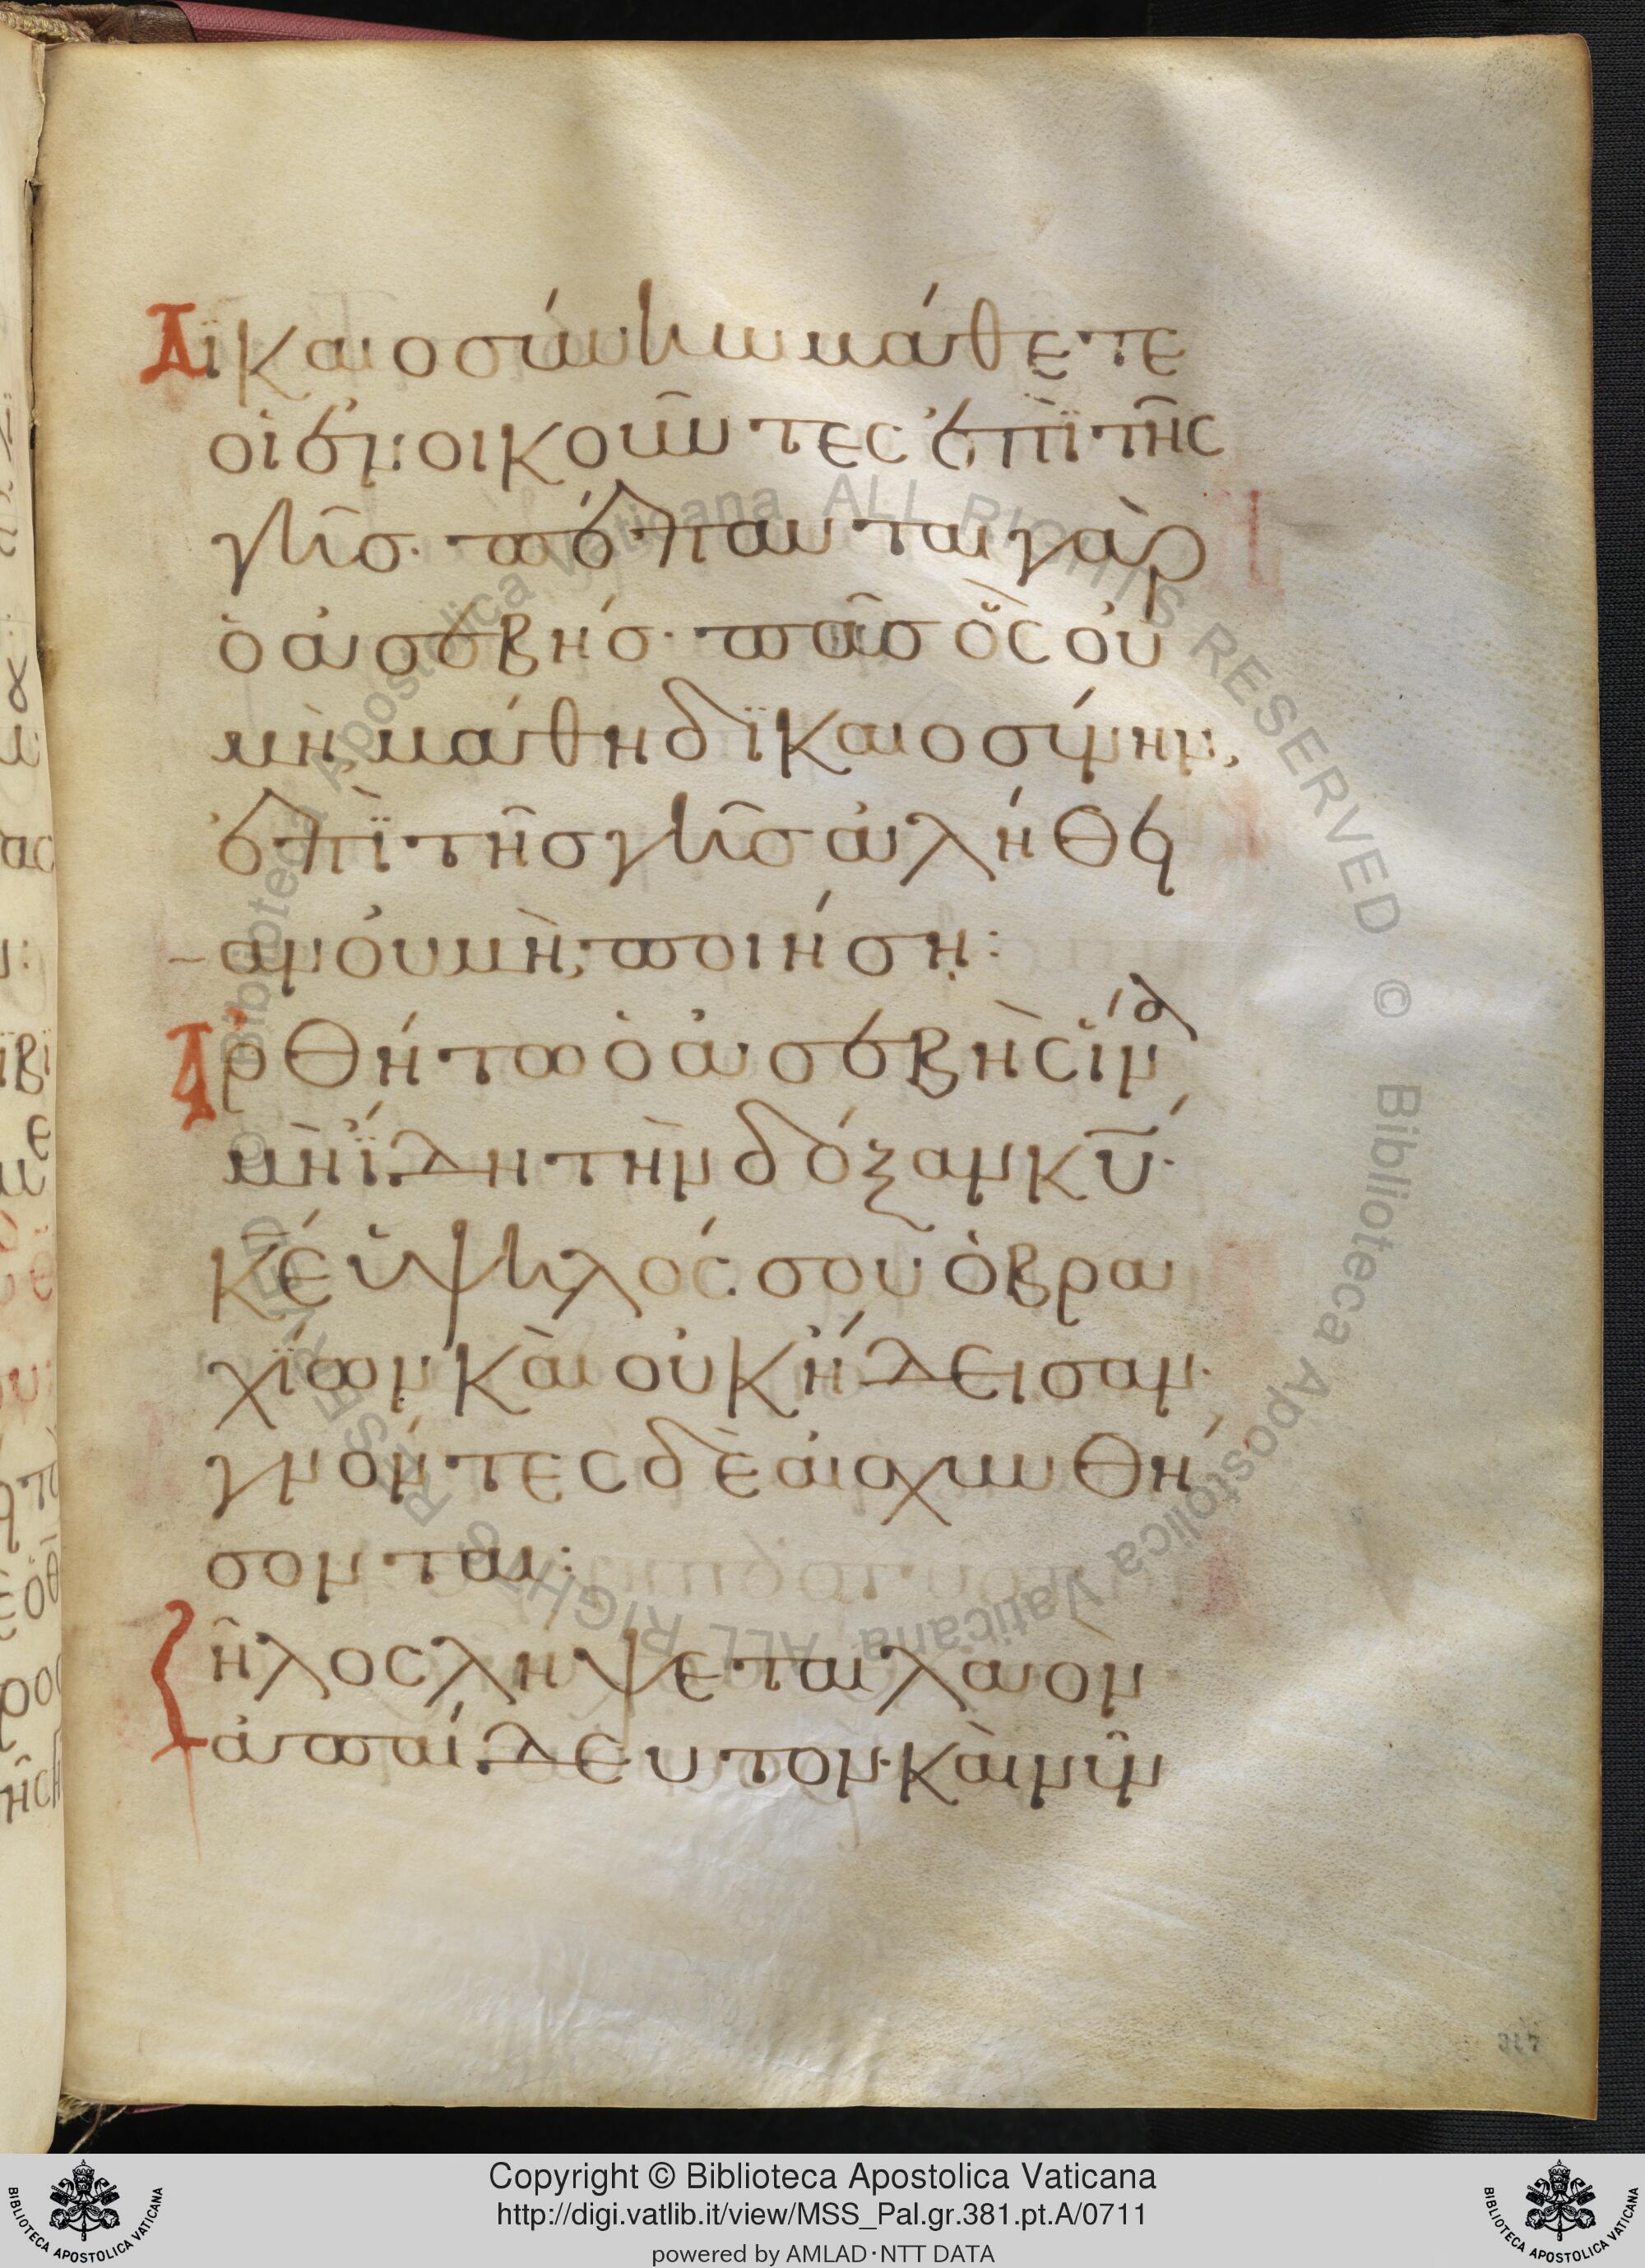 Δϊκαιοσύνην μάθετε
οἱ ἐνοικοῦντες ἐπῒ τῆς
γῆσ· πέπαυται γὰρ
ὁ ἀσεβήσ· πᾶσ ὃς οὐ
μὴ μάθη δϊκαιοσύνην,
ἐπῒ τῆσ γῆσ ἀλήθει
αν οὐ μὴ ποιήση:
Ἀρθήτω ὁ ἀσεβὴς ἵνα
μὴ ἴδη τὴν δόξαν κυ·
κέ ὑψηλός σου ὁ βρα
χΐων καὶ οὐκ ἤδεισαν·
γνόντες δὲ αἰσχυνθή
σονται:
ζῆλος λήψεται λαὸν
ἀπαίδευτον· καὶ νῦν
317
Copyright © Biblioteca Apostolica Vaticana
http://digi.vatlib.it/view/MSS_Pal.gr.381.pt.A/0711
powered by AMLAD·NTT DATA
BIBLIOTECA APOSTOLICA VATICANA
BIBLIOTECA APOSTOLICA VATICANA
© Biblioteca Apostolica Vaticana ALL RIGHTS RESERVED © Biblioteca Apostolica Vaticana ALL RIGHTS RESERVED